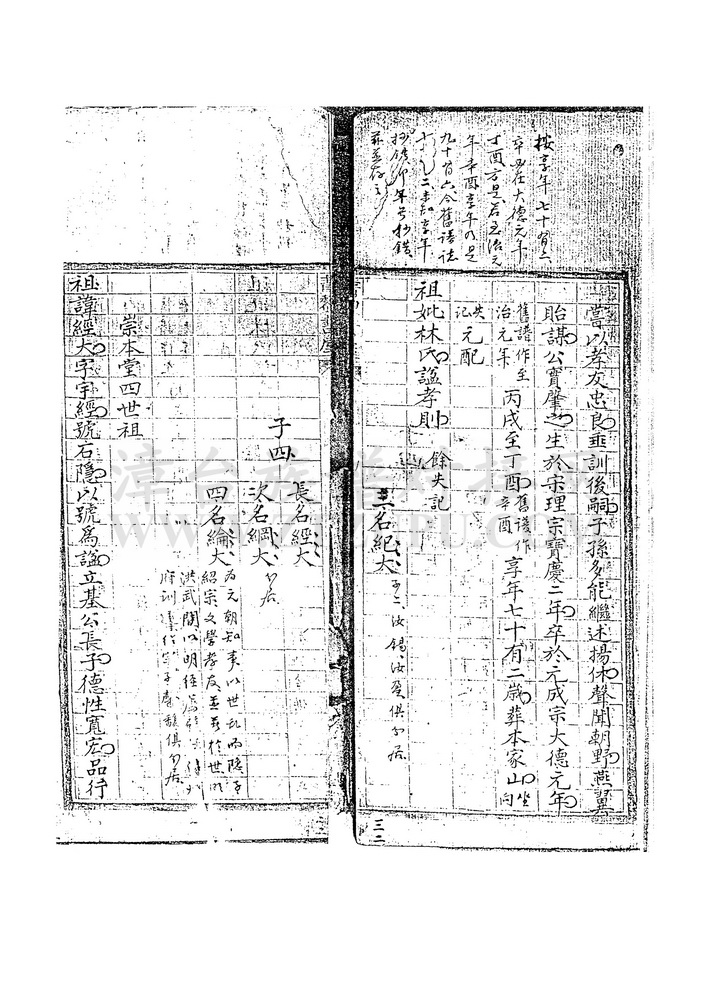 按享年七十有二
卒必在大德元年
丁酉方是若至治元
年辛酉享年乃是
九十有六今舊譜誌
七十有二未知享年
抄錯抑年号抄錯
並存之
嘗以孝友忠良垂訓後嗣子孫多能繼述揚休聲聞朝野燕翼
貽謀公實肇之生於宋理宗寶慶二年卒於元成宗大德元年
舊譜作至治元年
丙戌至丁酉
舊譜作辛酉
享年七十有二歲葬本家山
坐向
失記
元配
祖妣林氏謚孝則
餘失記
子四
長名經大
次名綱大
分居
三名紀大
子二汝錫汝賢俱分居
四名綸大
為元朝知事以世乱而隱子
紹宗文學孝友並著於世
洪武間以明經
府訓
俱分居
崇本堂四世祖
祖諱經大字宇經號石隱以號為謚立基公長子德性寬宏品行
三二
漳台族譜對接網
WWW.ZTZUPU.COM